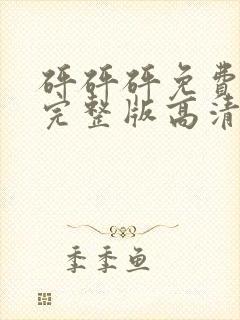 砰砰砰免费
完整版高清
季季鱼